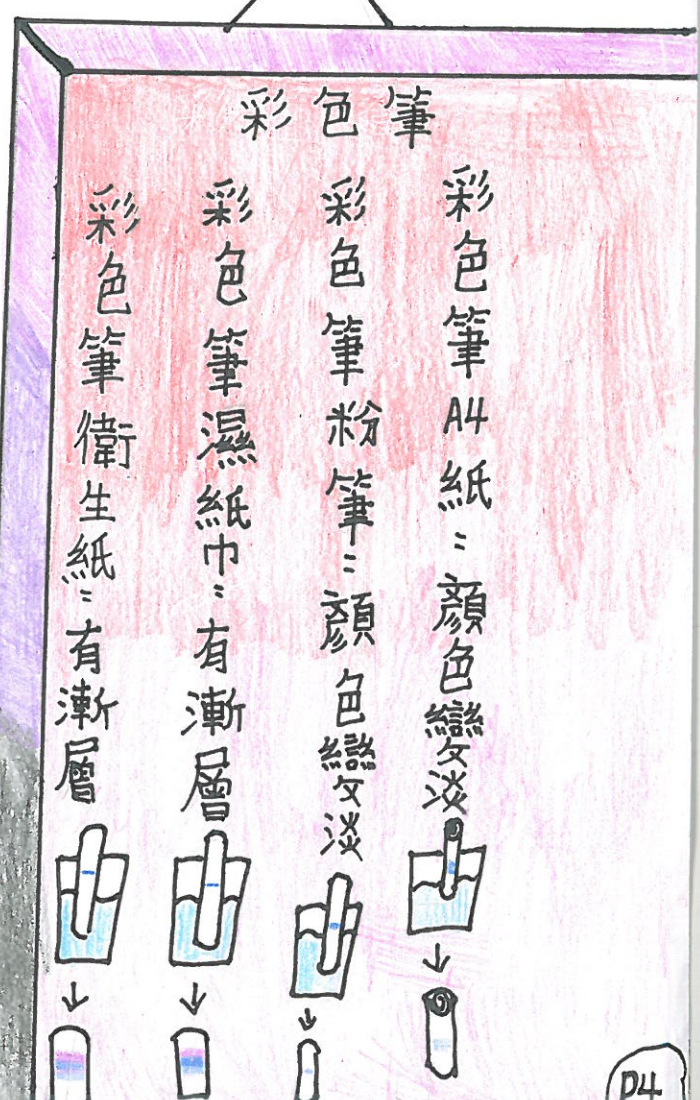 彩色筆
彩色筆A4紙：顏色變淡
彩色筆粉筆：顏色變淡
彩色筆濕紙巾：有漸層
彩色筆衛生紙：有漸層
P4